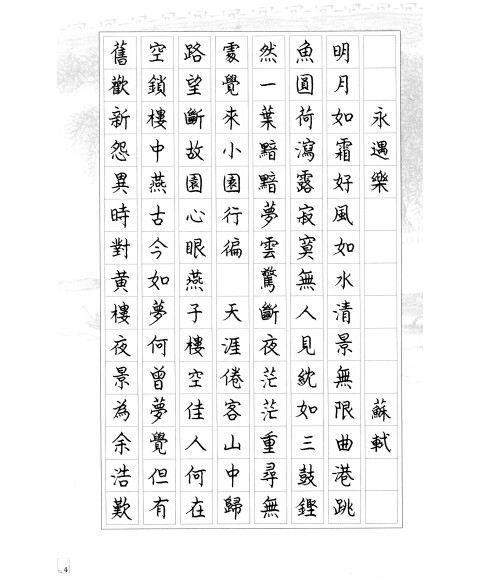 永遇樂 蘇軾
明月如霜好風如水清景無限曲港跳
魚圓荷瀉露寂寞無人見紞如三鼓鏗
然一葉黯黯夢雲驚斷夜茫茫重尋無
處覺來小園行徧 天涯倦客山中歸
路望斷故園心眼燕子樓空佳人何在
空鎖樓中燕古今如夢何曾夢覺但有
舊歡新怨異時對黃樓夜景為余浩歎
4